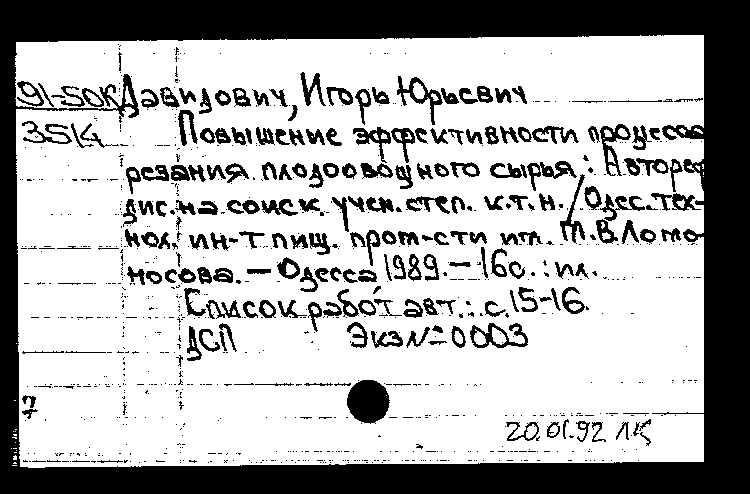 91-50К Давидович, Игорь Юрьевич
3514 Повышение эффективности процесса
резания плодоовощного сырья : Автореф
дис. на соиск. учен. степ. к.т.н. / Одес. тех-
нол. ин-т пищ. пром-сти им. М.В. Ломо-
носова. — Одесса 1989. — 16с. : ил.
Список работ авт.: с. 15-16.
ДСП Экз № 0003
7
20.01.92 ЛК